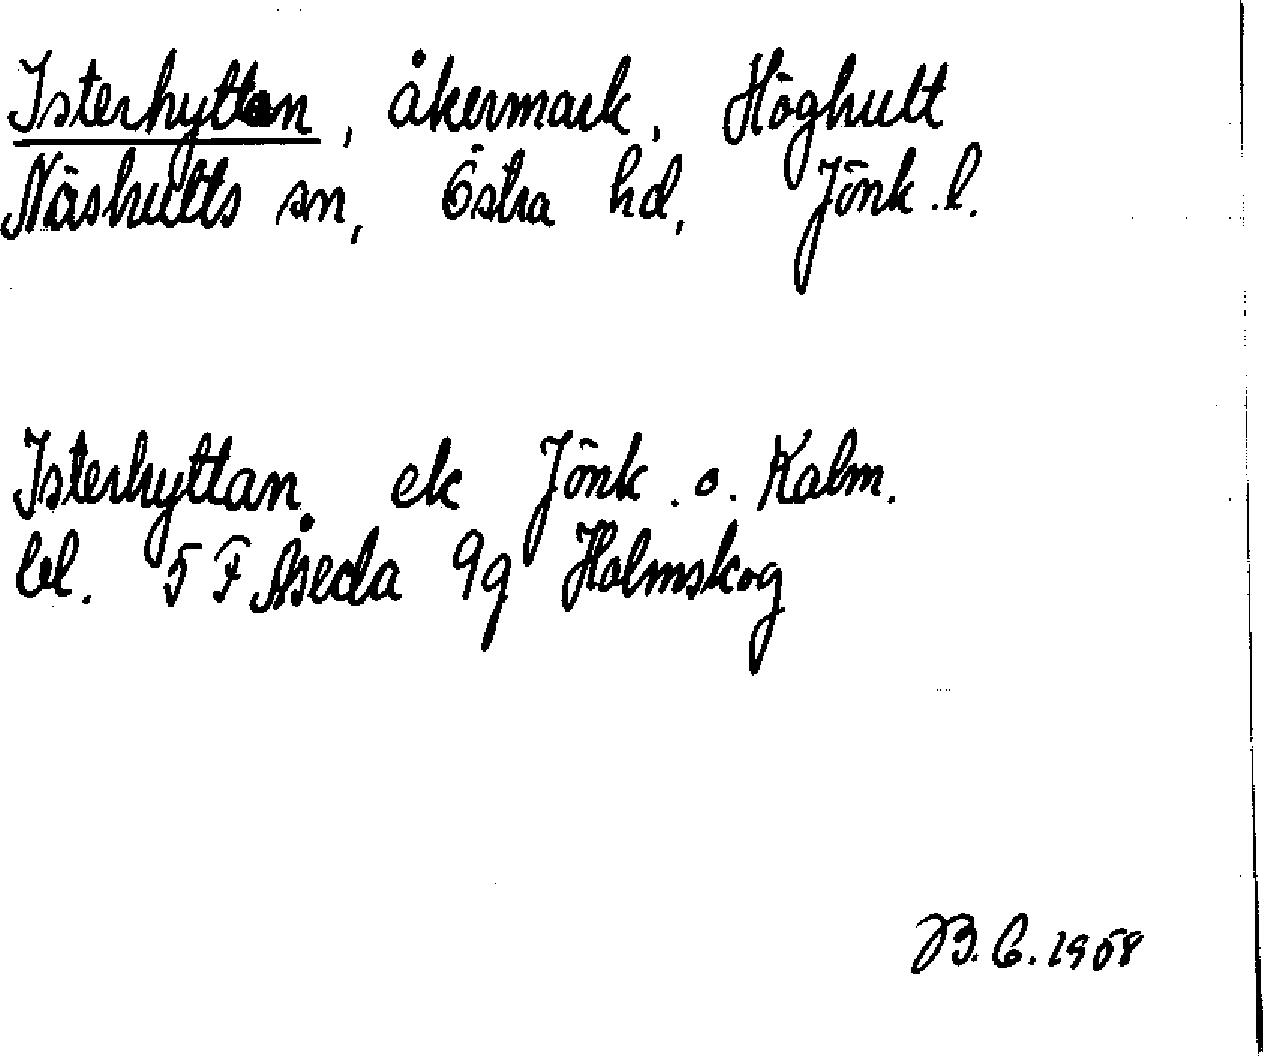 Isterhyttan, åkermark, Höghult
Näshults sn, Östra hd, Jönk. l.
Isterhyttan ek Jönk. o. Kalm.
bl. 5 F Åseda 9g Holmskog
B. C. 1958